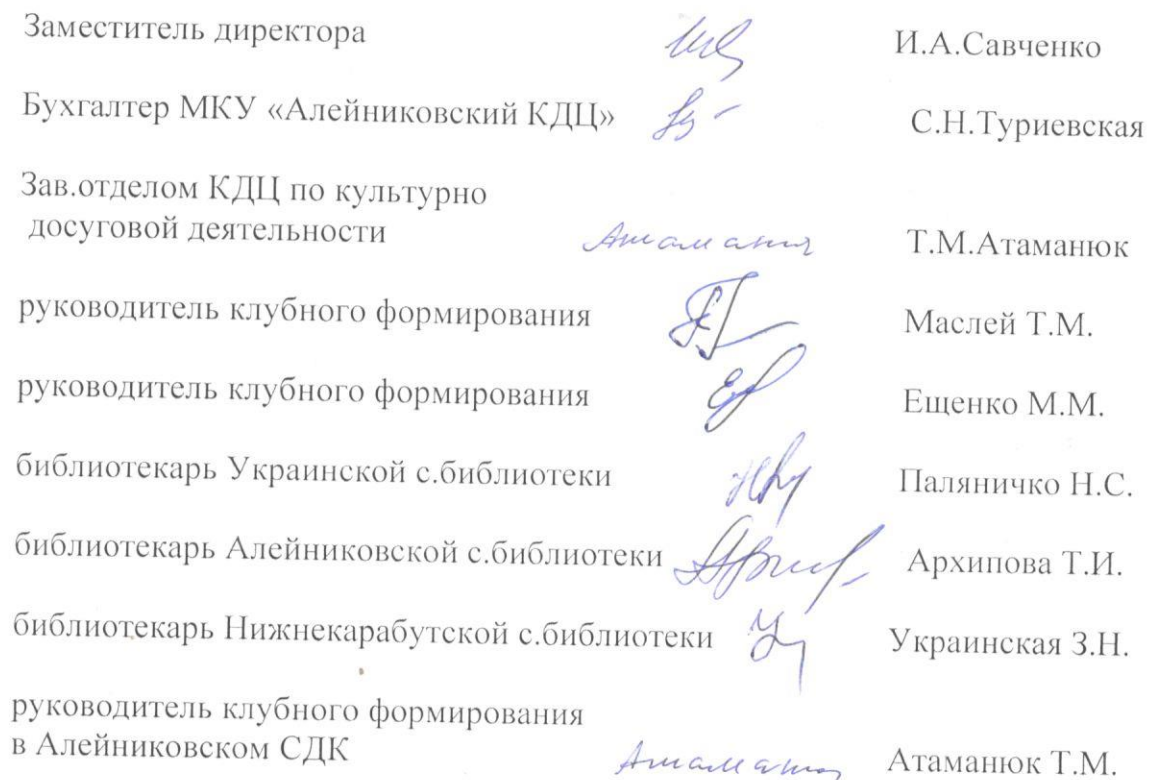 Заместитель директора И.А.Савченко
Бухгалтер МКУ «Алейниковский КДЦ» С.Н.Туриевская
Зав.отделом КДЦ по культурно
досуговой деятельности Т.М.Атаманюк
руководитель клубного формирования Маслей Т.М.
руководитель клубного формирования Ещенко М.М.
библиотекарь Украинской с.библиотеки Паляничко Н.С.
библиотекарь Алейниковской с.библиотеки Архипова Т.И.
библиотекарь Нижнекарабутской с.библиотеки Украинская З.Н.
руководитель клубного формирования
в Алейниковском СДК Атаманюк Т.М.